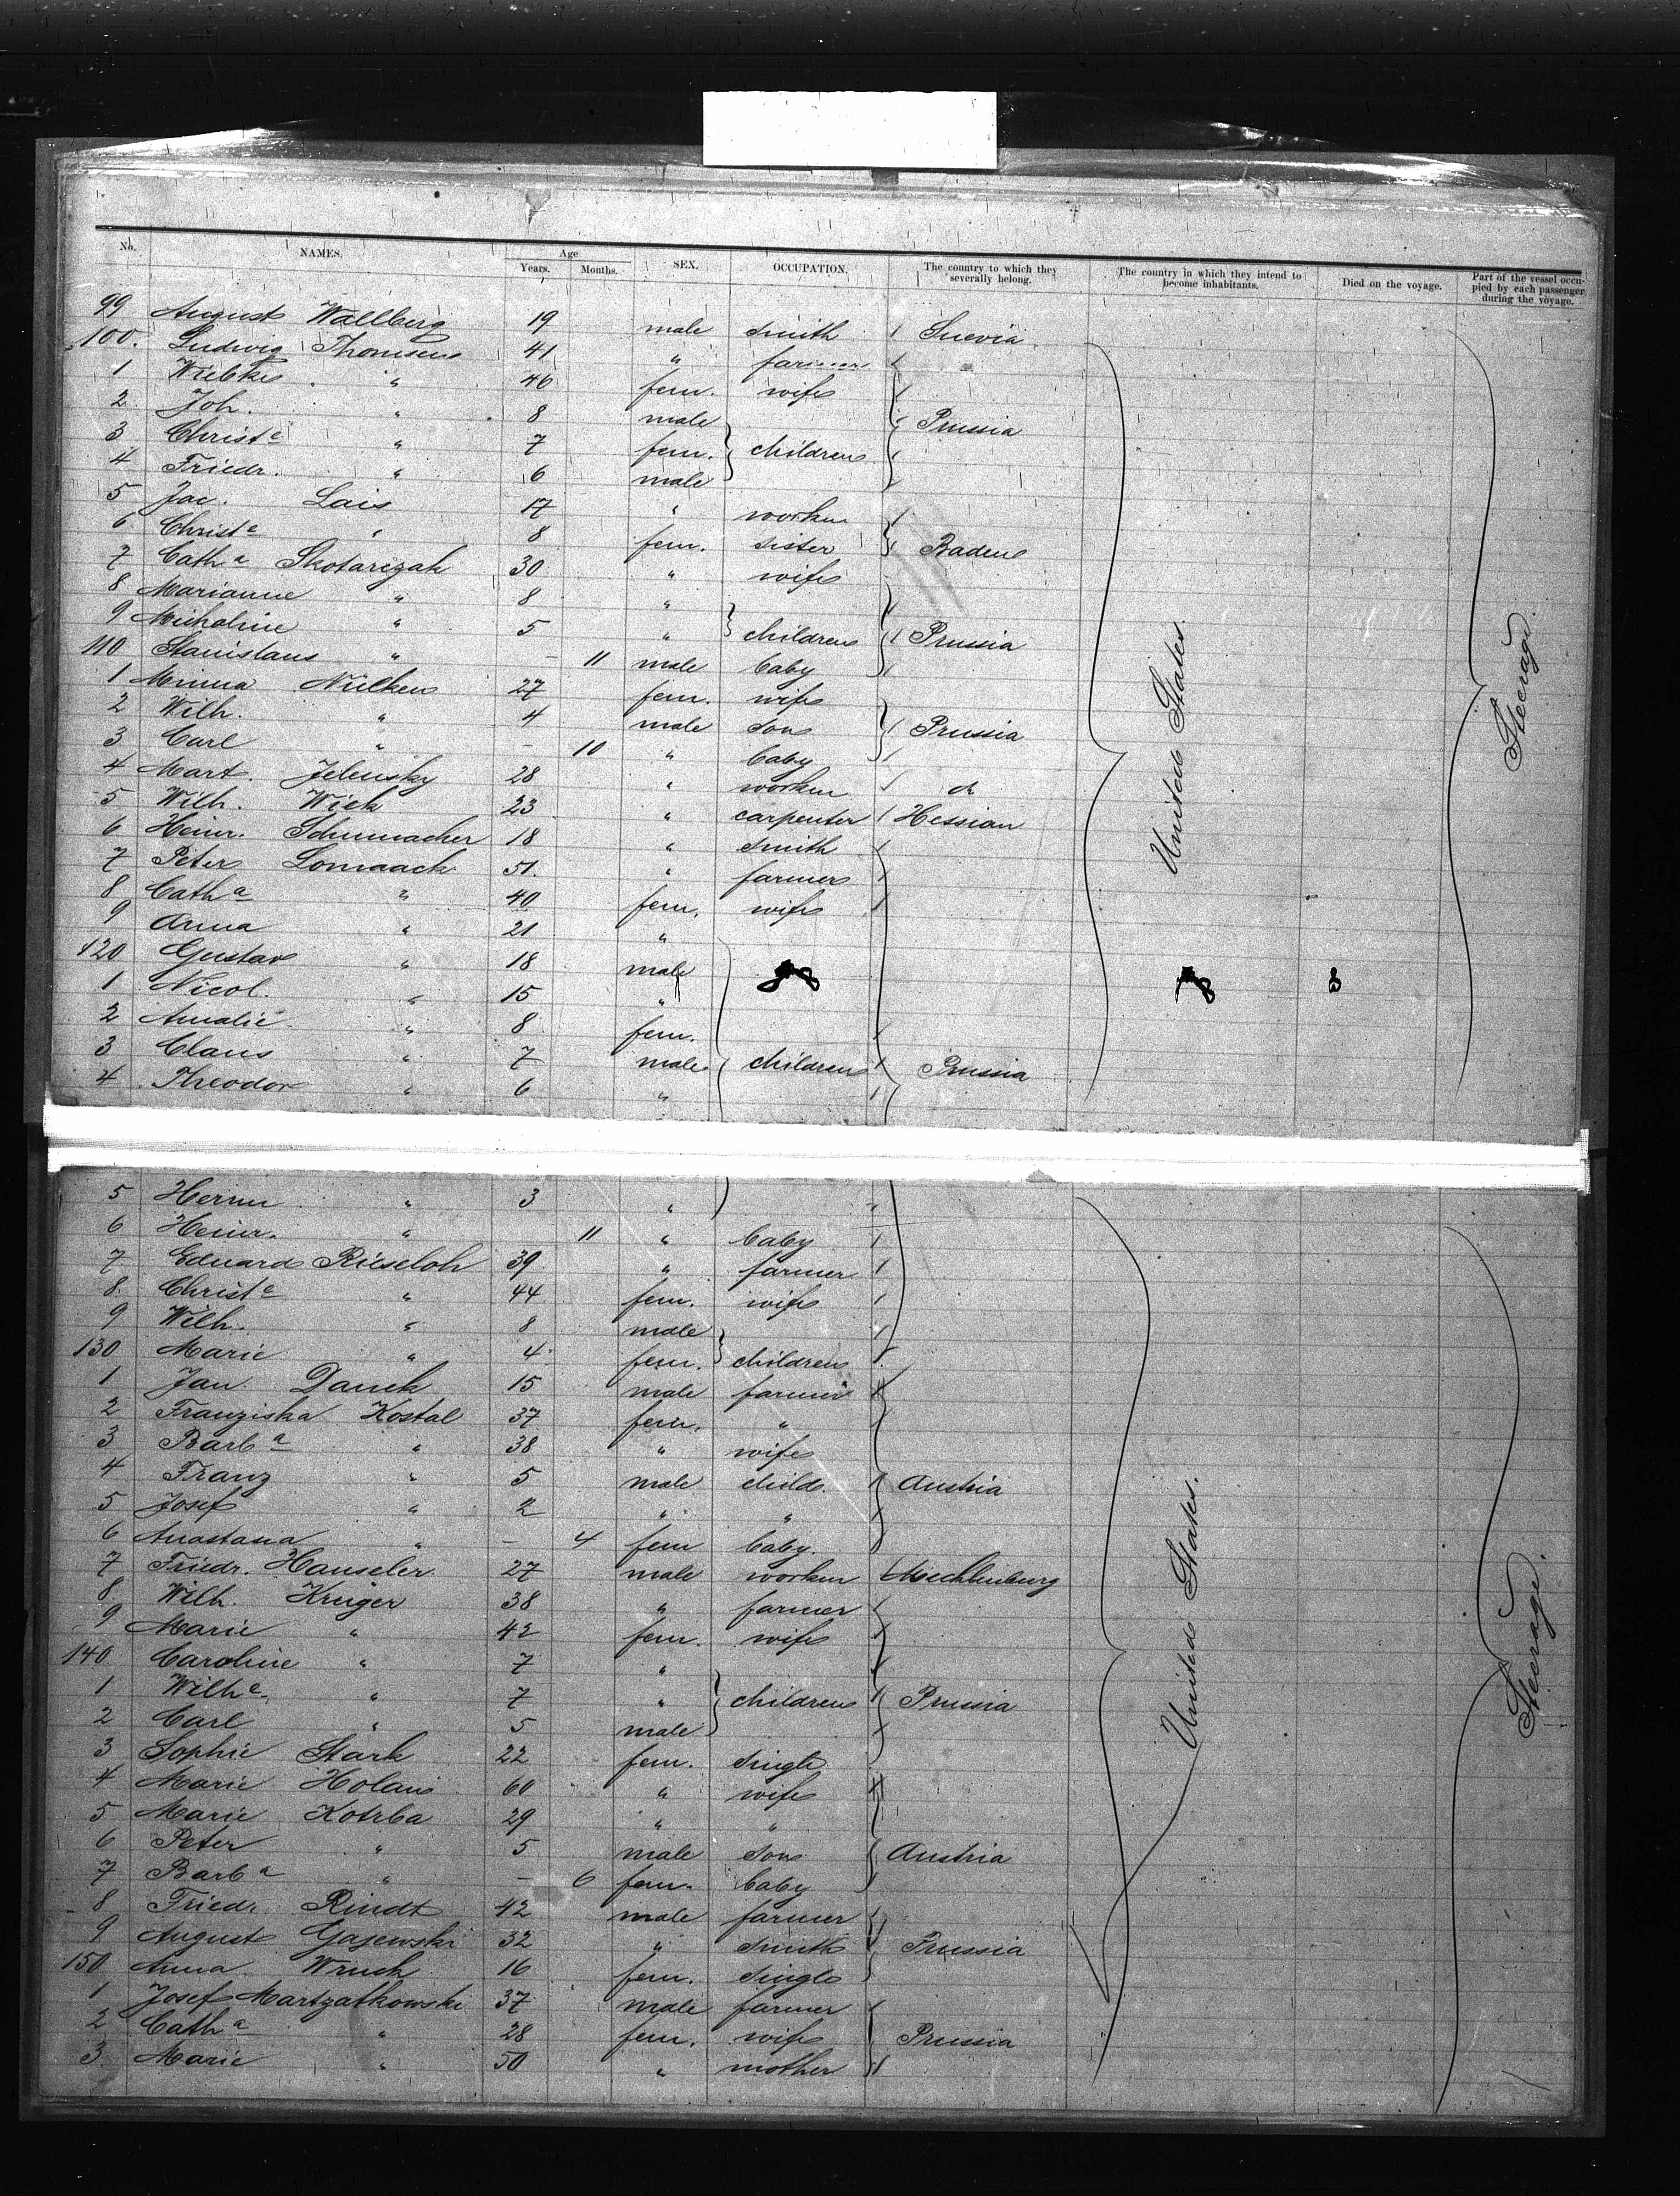 No. NAMES. Age Years. Months. SEX. OCCUPATION. The country to which they severally belong. The country in which they intend to become inhabitants. Died on the voyage. Part of the vessel occupied by each passenger during the voyage.
99 August Wallberg 19 male smith Suevia
100. Ludwig Thomsen 41 " farmer
1 Wiebke " 46 fem. wife
2 Joh. " 8 male Prussia
3 Christe " 7 fem. children
4 Friedr. " 6 male
5 Jac. Lais 17 " worker
6 Christe " 8 fem. sister Baden
7 Catha Skotarczak 30 " wife
8 Marianne " 8 "
9 Micholine " 5 " children Prussia
110 Stanislaus " - 11 male baby
1 Minna Nielken 27 fem. wife
2 Wilh. " 4 male son Prussia
3 Carl " - 10 " baby
4 Mart. Jelensky 28 " worker do
5 Wilh. Wiek 23 " carpenter Hessian
6 Heinr. Schumacher 18 " smith
7 Peter Lomaack 51. " farmer
8 Catha " 40 fem. wife
9 Anna " 21 "
120 Gustav " 18 male
1 Nicol. " 15 "
2 Amalie " 8 fem.
3 Claus " 7 male children Prussia
4 Theodor " 6 "
United States.
Steerage.
5 Herm " 3 "
6 Heinr. " 11 " baby
7 Eduard Rieseloh 39 " farmer
8. Christe " 44 fem. wife
9 Wilh. " 8 male
130 Marie " 4 fem. children
1 Jan Danek 15 male farmer
2 Franziska Kostal 37 fem. "
3 Barba " 38 " wife
4 Franz " 5 male child. Austria
5 Josef " 2 " "
6 Anastasia " - 4 fem baby.
7 Friedr. Hanseler 27 male worker Mecklenburg
8 Wilh. Krüger 38 " farmer
9 Marie " 42 fem. wife
140 Caroline " 7 "
1 Wilhe. " 7 " children Prussia
2 Carl " 5 male
3 Sophie Stark 22 fem. single
4 Marie Holan 60 " wife
5 Marie Kotrba 29 " "
6 Peter " 5 male son Austria
7 Barba " - 6 fem. baby
8 Friedr. Rindt 42 male farmer
9 August Gajewski 32 " smith Prussia
150 Anna Wruck 16 fem. single
1 Josef Martzatkowski 37 male farmer
2 Catha " 28 fem. wife Prussia
3 Marie " 50 " mother
United States.
Steerage.